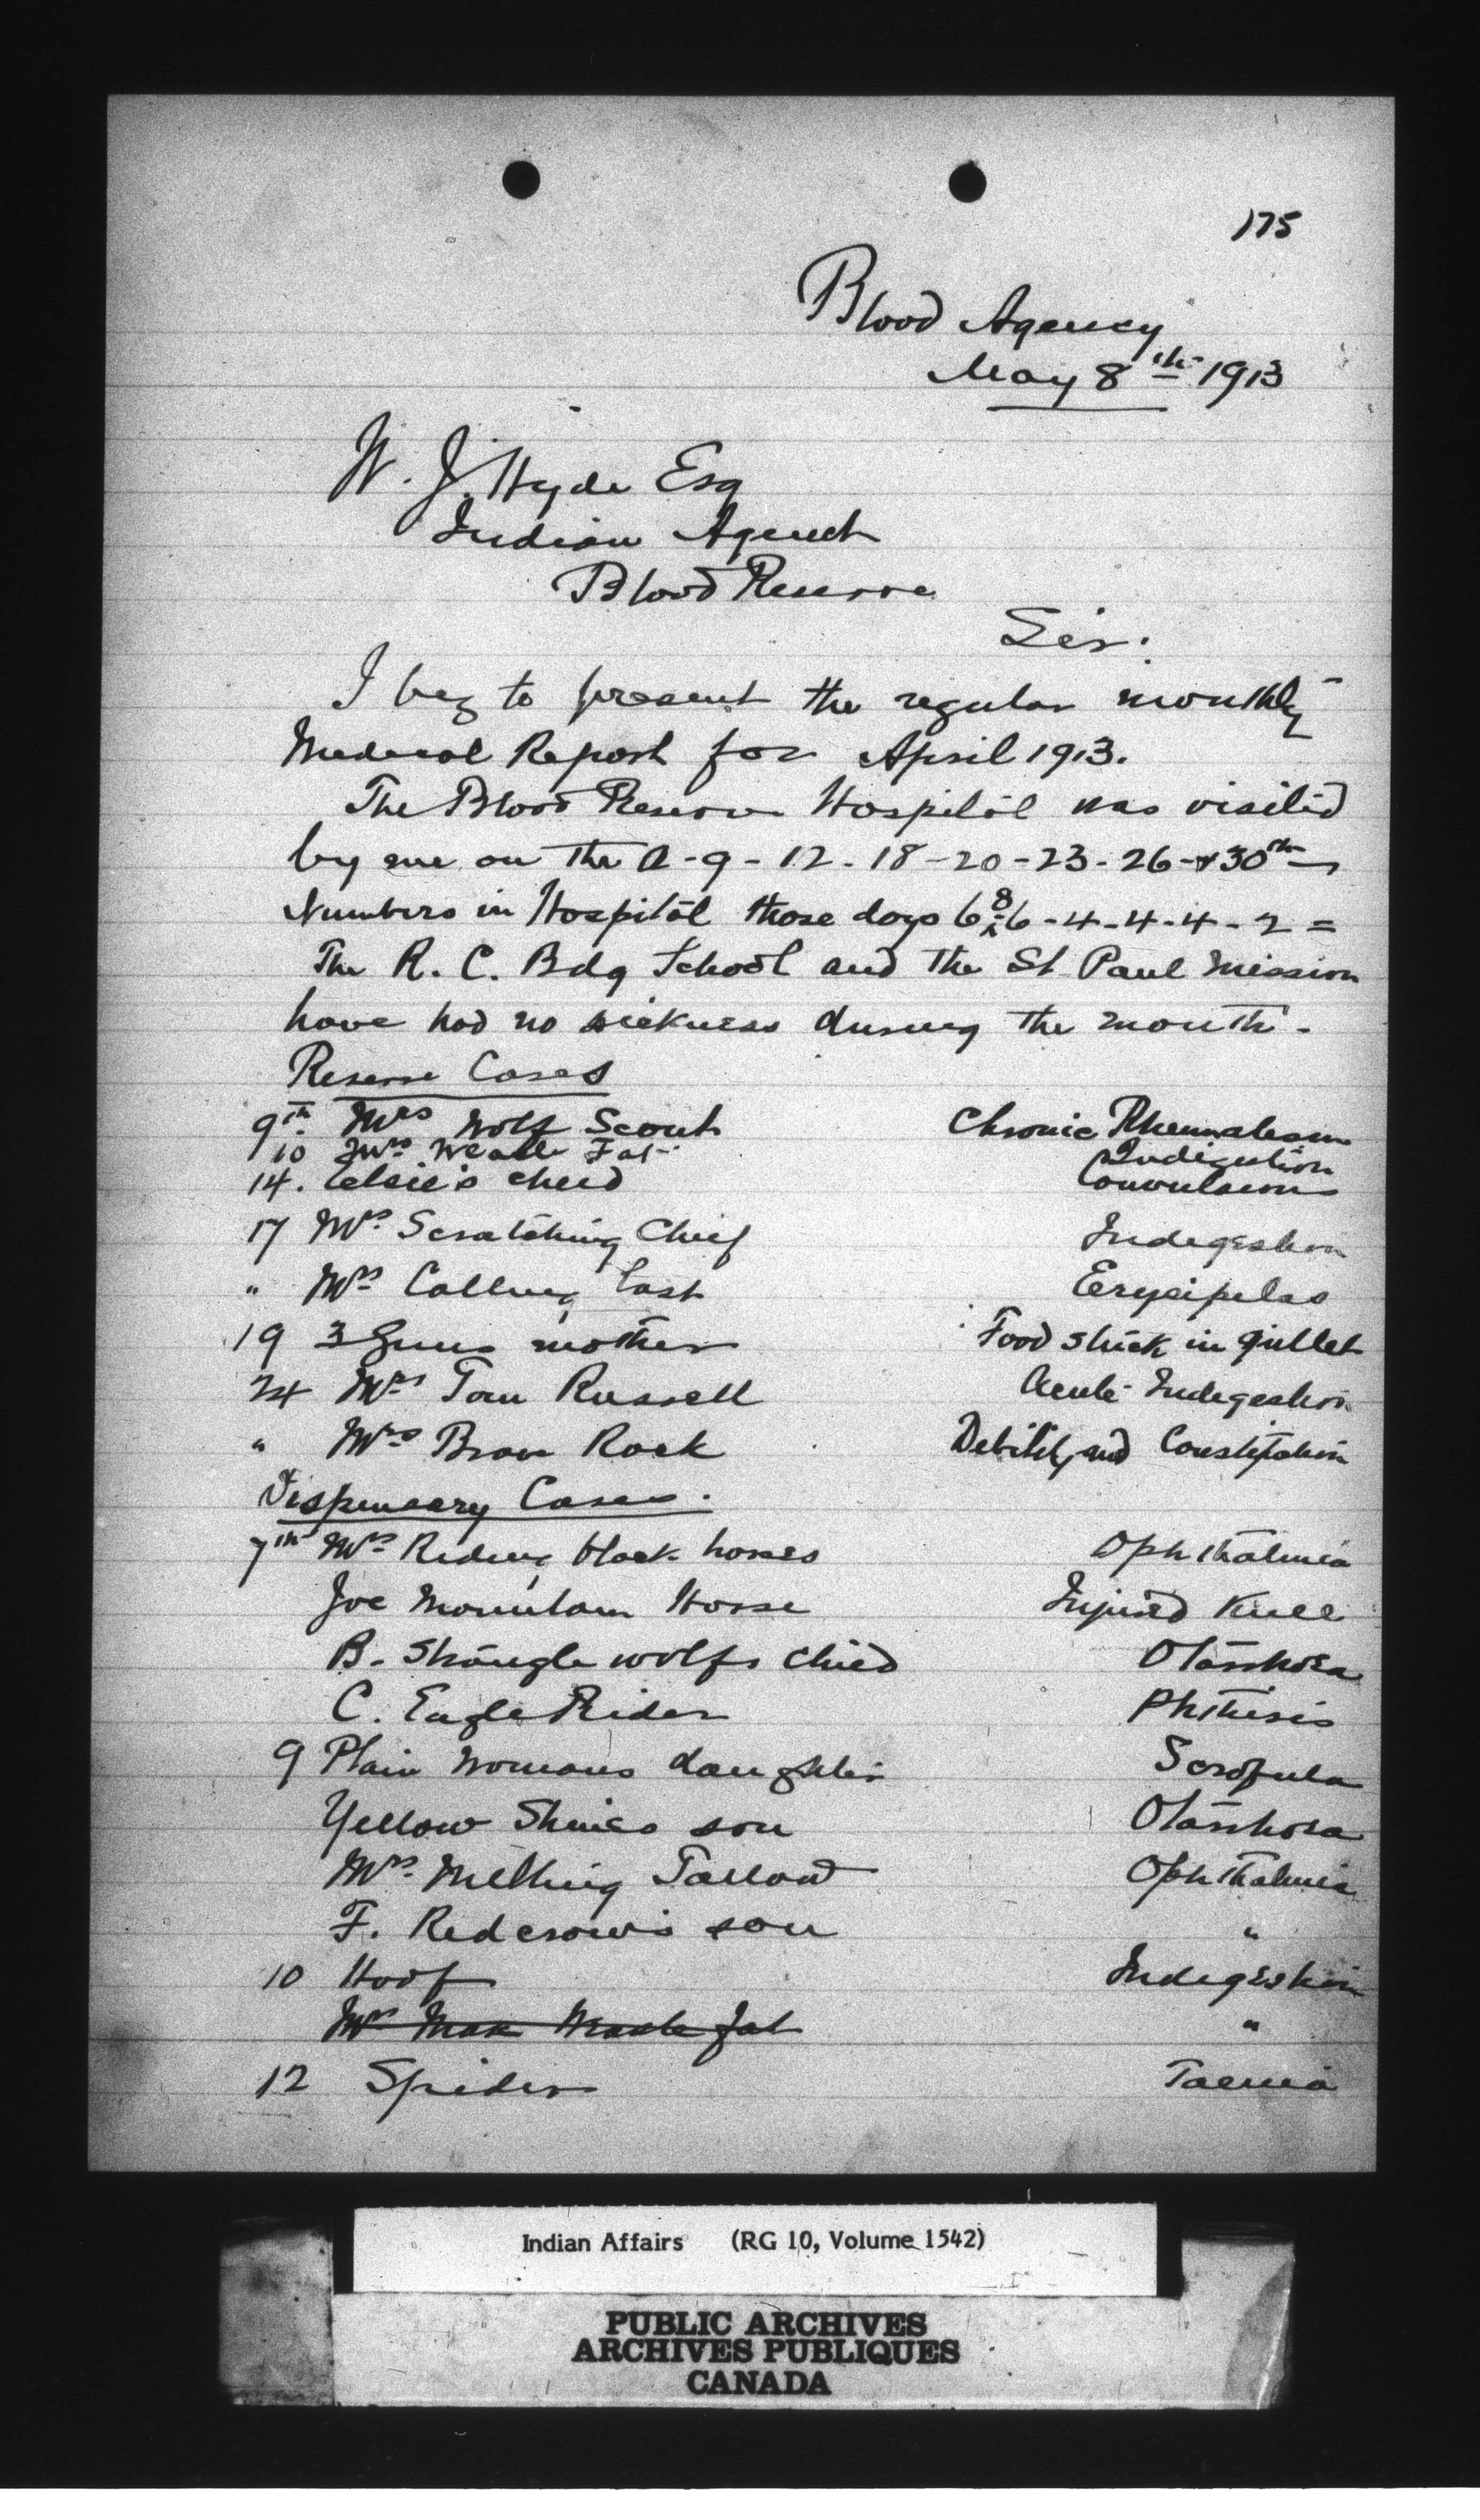 175
Blood Agency
May 8th 1913
W. J. Hyde Esq
Indian Agent
Blood Reserve
Sir:
I beg to present the regular monthly
Medical Report for April 1913.
The Blood Reserve Hospital was visited
by me on the - 9 - 12 - 18 - 20 - 23 - 26 - & 30th
Numbers in Hospital those days 6 8 6 - 4 - 4 - 4 - 2 =
The R. C. Bdg School and the St Paul Mission
have had no sickness during the month -
Reserve Cases
9th Mrs Wolf Scout Chronic Rheumatism
10 Mrs Weasle Fat Indigestion
14. Elsie's child Convulsions
17 Mrs Scratching Chief Indigestion
" Mrs Calling Last Eerysipelas
19 3 Guns mother Food stuck in gullet
24 Mrs Tom Russell Acute Indigestion
" Mrs Rock Debility and Constipation
Dispensary Cases.
7th Mrs Riding black horses Ophthalmia
Joe Mountain Horse Injured Knee
B. Shangle wolfs child Otorrhoea
C. Eagle Rider Phthisis
9 Plain Womans daughter Scrofula
Yellow Shines son Otorrhoea
Mrs Melting Tallow Ophthalmia
F. Red crow's son "
10 Hoof Indigestion
Mrs Weasle fat "
12 Spider Taenia
Indian Affairs (RG 10, Volume 1542)
PUBLIC ARCHIVES
ARCHIVES PUBLIQUES
CANADA